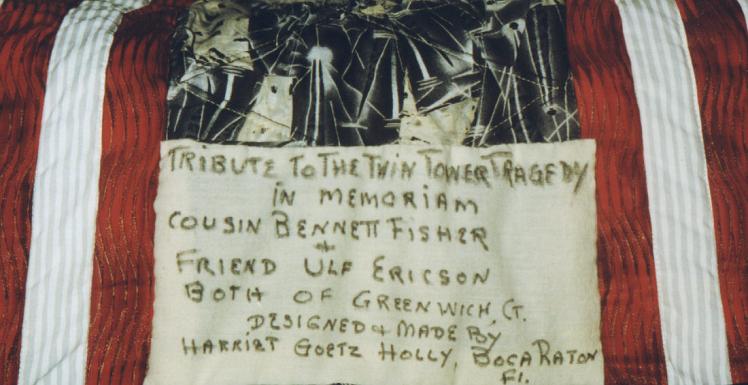 TRIBUTE TO THE TWIN TOWER TRAGEDY
IN MEMORIAM
COUSIN BENNETT FISHER
+
FRIEND ULF ERICSON
BOTH OF GREENWICH, CT.
DESIGNED + MADE BY
HARRIET GOETZ HOLLY, BOCA RATON
Fl.